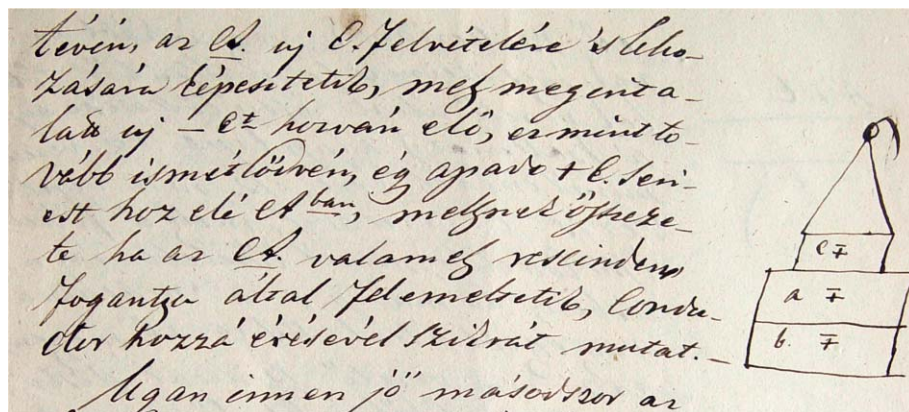 tévén, az A. uj E. felvételére 's leho-
zására képesítetik, mely megint a-
latt uj – Et hozván elő, ez mint to-
vább ismétlődvén, ég apado + E. seri-
est hoz elé A ban, melynek össeze-
te ha az A. valamely rescindens
fogantyu által felemeltetik, condu-
ctor hozzá érésével szikrát mutat. –
Ugan innen jő másodszor az
c ∓
a ∓
b. ∓